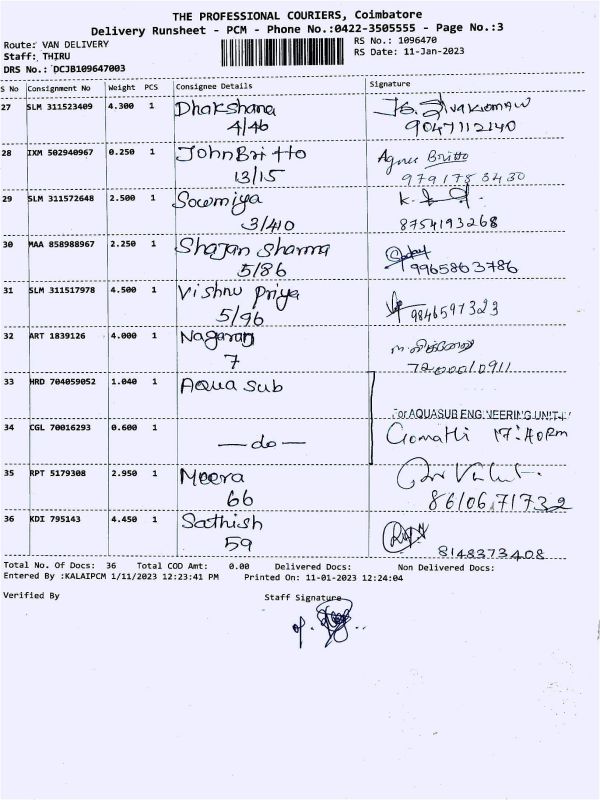 THE PROFESSIONAL COURIERS, Coimbatore
Delivery Runsheet - PCM - Phone No.:0422-3505555 - Page No.:3
Route: VAN DELIVERY
RS No.: 1096470
Staff: THIRU
RS Date: 11-Jan-2023
DRS No.: DCJB109647003
S No Consignment No Weight PCS Consignee Details Signature
27 SLM 311523409 4.300 1 Dhakshana
4/46 9047112140
28 IXM 502940967 0.250 1 John Britto Agnes Britto
13/15
29 SLM 311572648 2.500 1 Sowmiya
3/410 8754193268
30 MAA 858988967 2.250 1 Shajan Sharma
5/86 9965863786
31 SLM 311517978 4.500 1 Vishnu Priya
5/96 9846597323
32 ART 1839126 4.000 1 Nagaraj
7 7200010911
33 HRD 704059052 1.040 1 Aqua sub
For AQUASUB ENGINEERING UNIT-I
34 CGL 70016293 0.600 1 Gomathi 17:40 Pm
— do —
35 RPT 5179308 2.950 1 Meera
66 8610671732
36 KDI 795143 4.450 1 Sathish
59 8148373408
Total No. Of Docs: 36 Total COD Amt: 0.00 Delivered Docs: Non Delivered Docs:
Entered By :KALAIPCM 1/11/2023 12:23:41 PM Printed On: 11-01-2023 12:24:04
Verified By Staff Signature